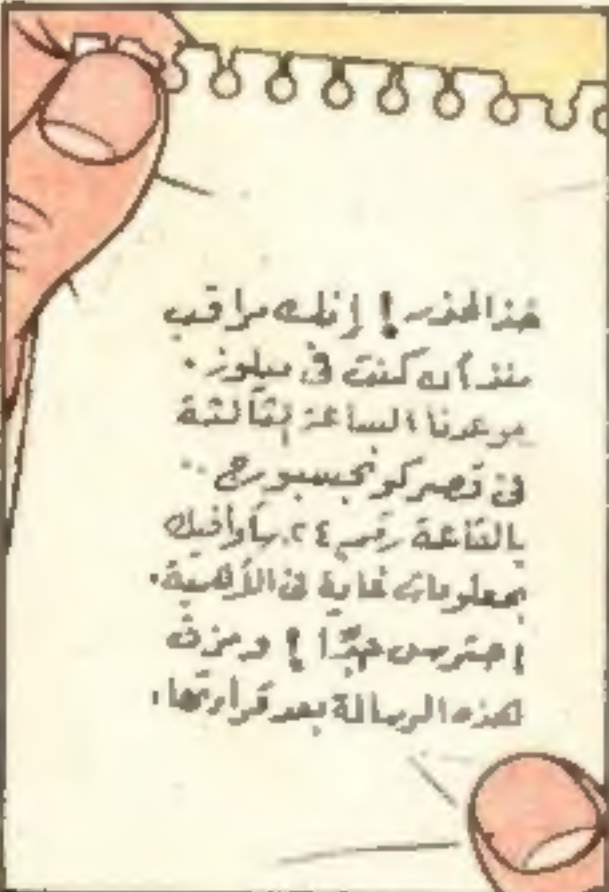 خذ الحذر ! إنك مراقب
منذ أن كنت في ميلوز .
موعدنا الساعة الثالثة
في قصر كونجسبورج ..
بالقاعة رقم ٢٤ . سأوافيك
بمعلومات غاية في الأهمية .
إحترس جيدًا ! ومزق
هذه الرسالة بعد قراءتها .